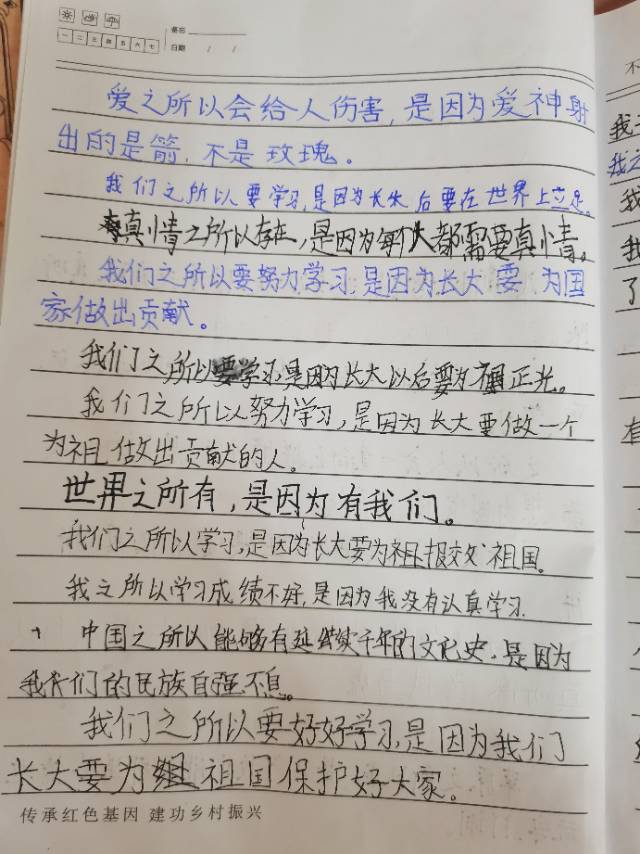 备忘
一二三四五六七
日期 / /
爱之所以会给人伤害,是因为爱神射
出的是箭,不是玫瑰。
我们之所以要学习,是因为长大后要在世界上立足。
真情之所以存在,是因为每个人都需要真情。
我们之所以要努力学习,是因为长大要为国
家做出贡献。
我们之所以要学习,是因为长大以后要为国正光。
我们之所以努力学习,是因为长大要做一个
为祖做出贡献的人。
世界之所有,是因为有我们。
我们之所以学习,是因为长大要为祖报效祖国。
我之所以学习成绩不好,是因为我没有认真学习.
中国之所以能够有延续千年的文化史,是因为
我们的民族自强不息。
我们之所以要好好学习,是因为我们
长大要为祖国保护好大家。
传承红色基因 建功乡村振兴
不
我
我之
我
我
了
有